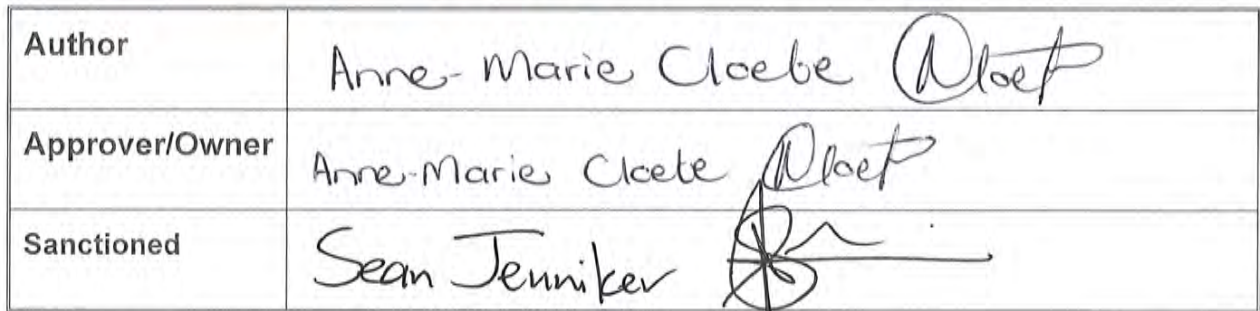 Author Anne-Marie Cloete
Approver/Owner Anne-Marie Cloete
Sanctioned Sean Jenniker